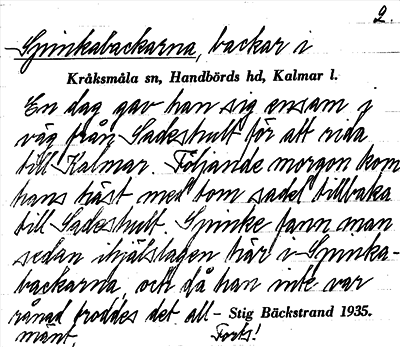 2.
Spinkabackarna, backar i
Kråksmåla sn, Handbörds hd, Kalmar l.
En dag gav han sig ensam i
väg från Sadeshult för att rida
till Kalmar. Följande morgon kom
hans häst med tom sadel tillbaka
till Sadeshult. Spinke fann man
sedan ihjälslagen här i Spinka-
backarna, och då han inte var
rånad troddes det all-
mänt,
Stig Bäckstrand 1935.
Forts!